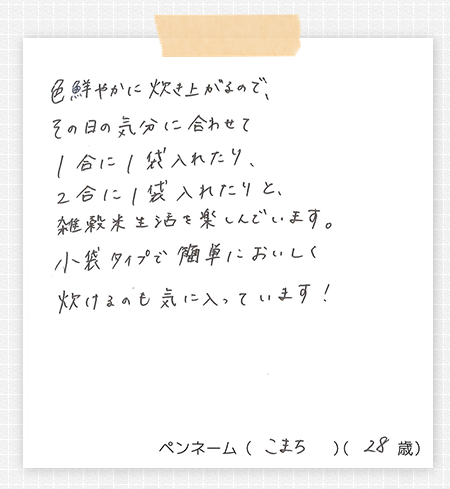 色鮮やかに炊き上がるので、
その日の気分に合わせて
1合に1袋入れたり、
2合に1袋入れたりと、
雑穀米生活を楽しんでいます。
小袋タイプで簡単においしく
炊けるのも気に入っています！
ペンネーム（ こまち ）（ 28 歳）